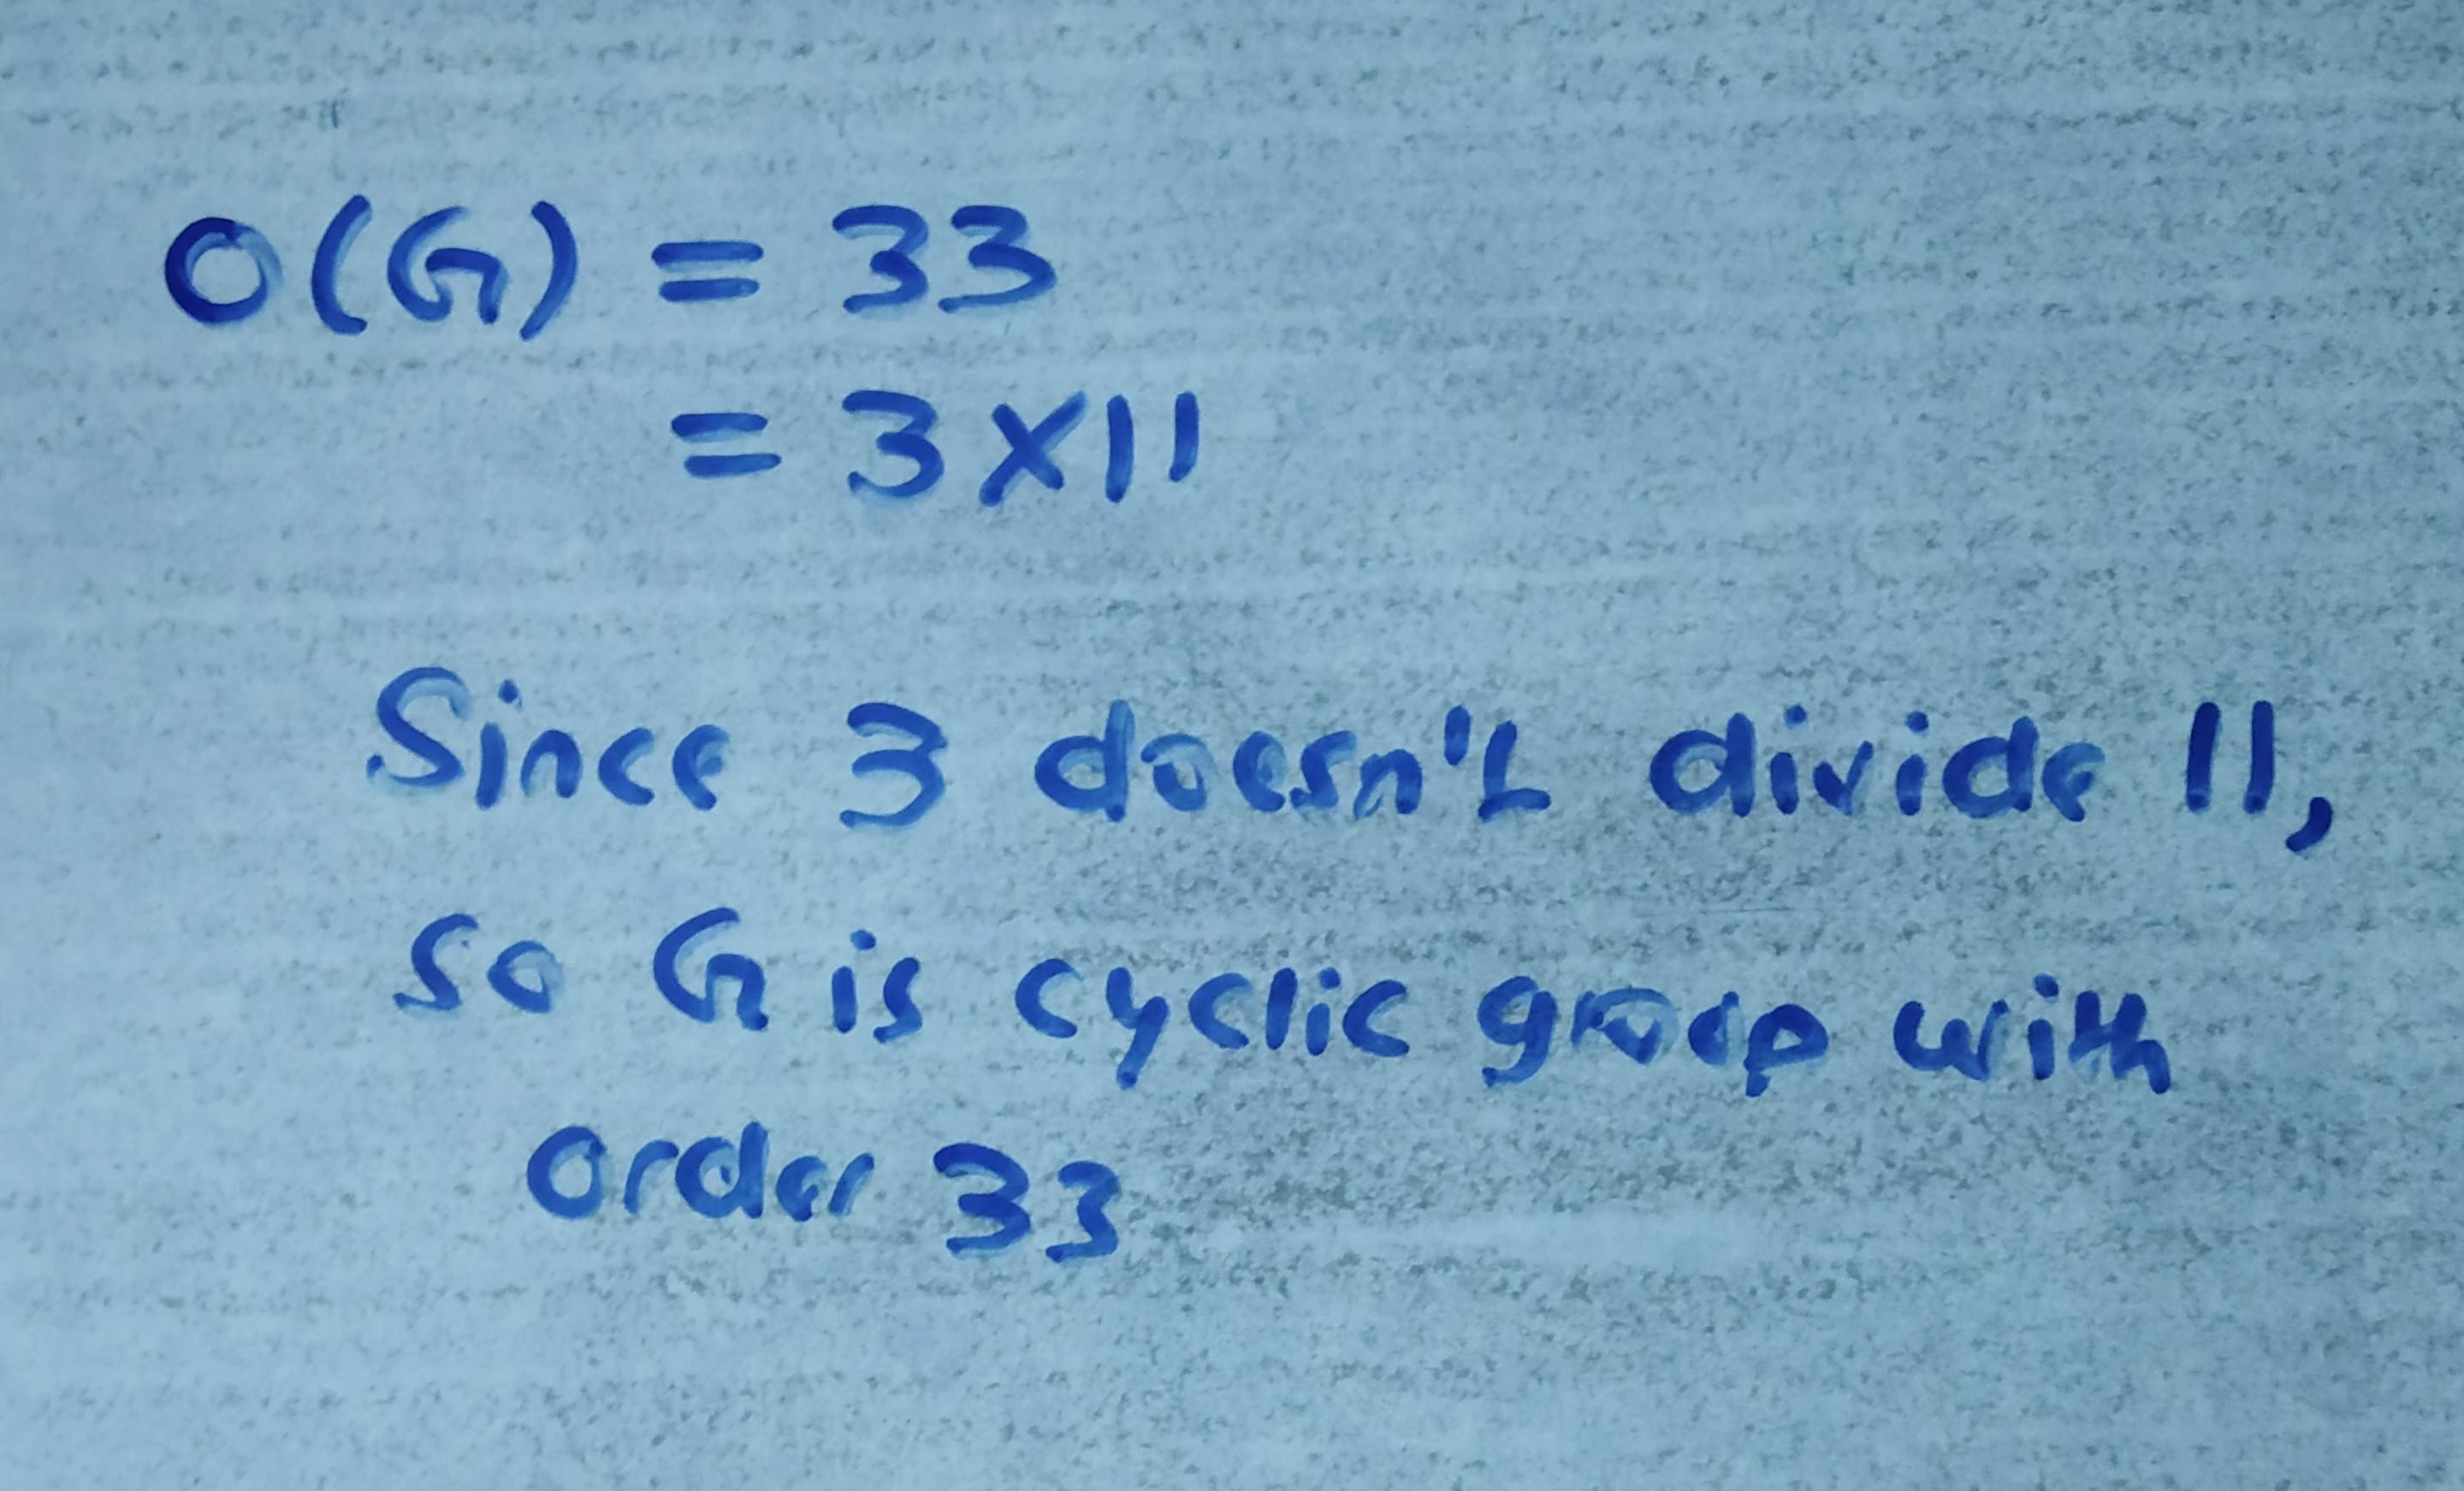 O(G) = 33
= 3 × 11
Since 3 doesn't divide 11,
so G is cyclic group with
order 33